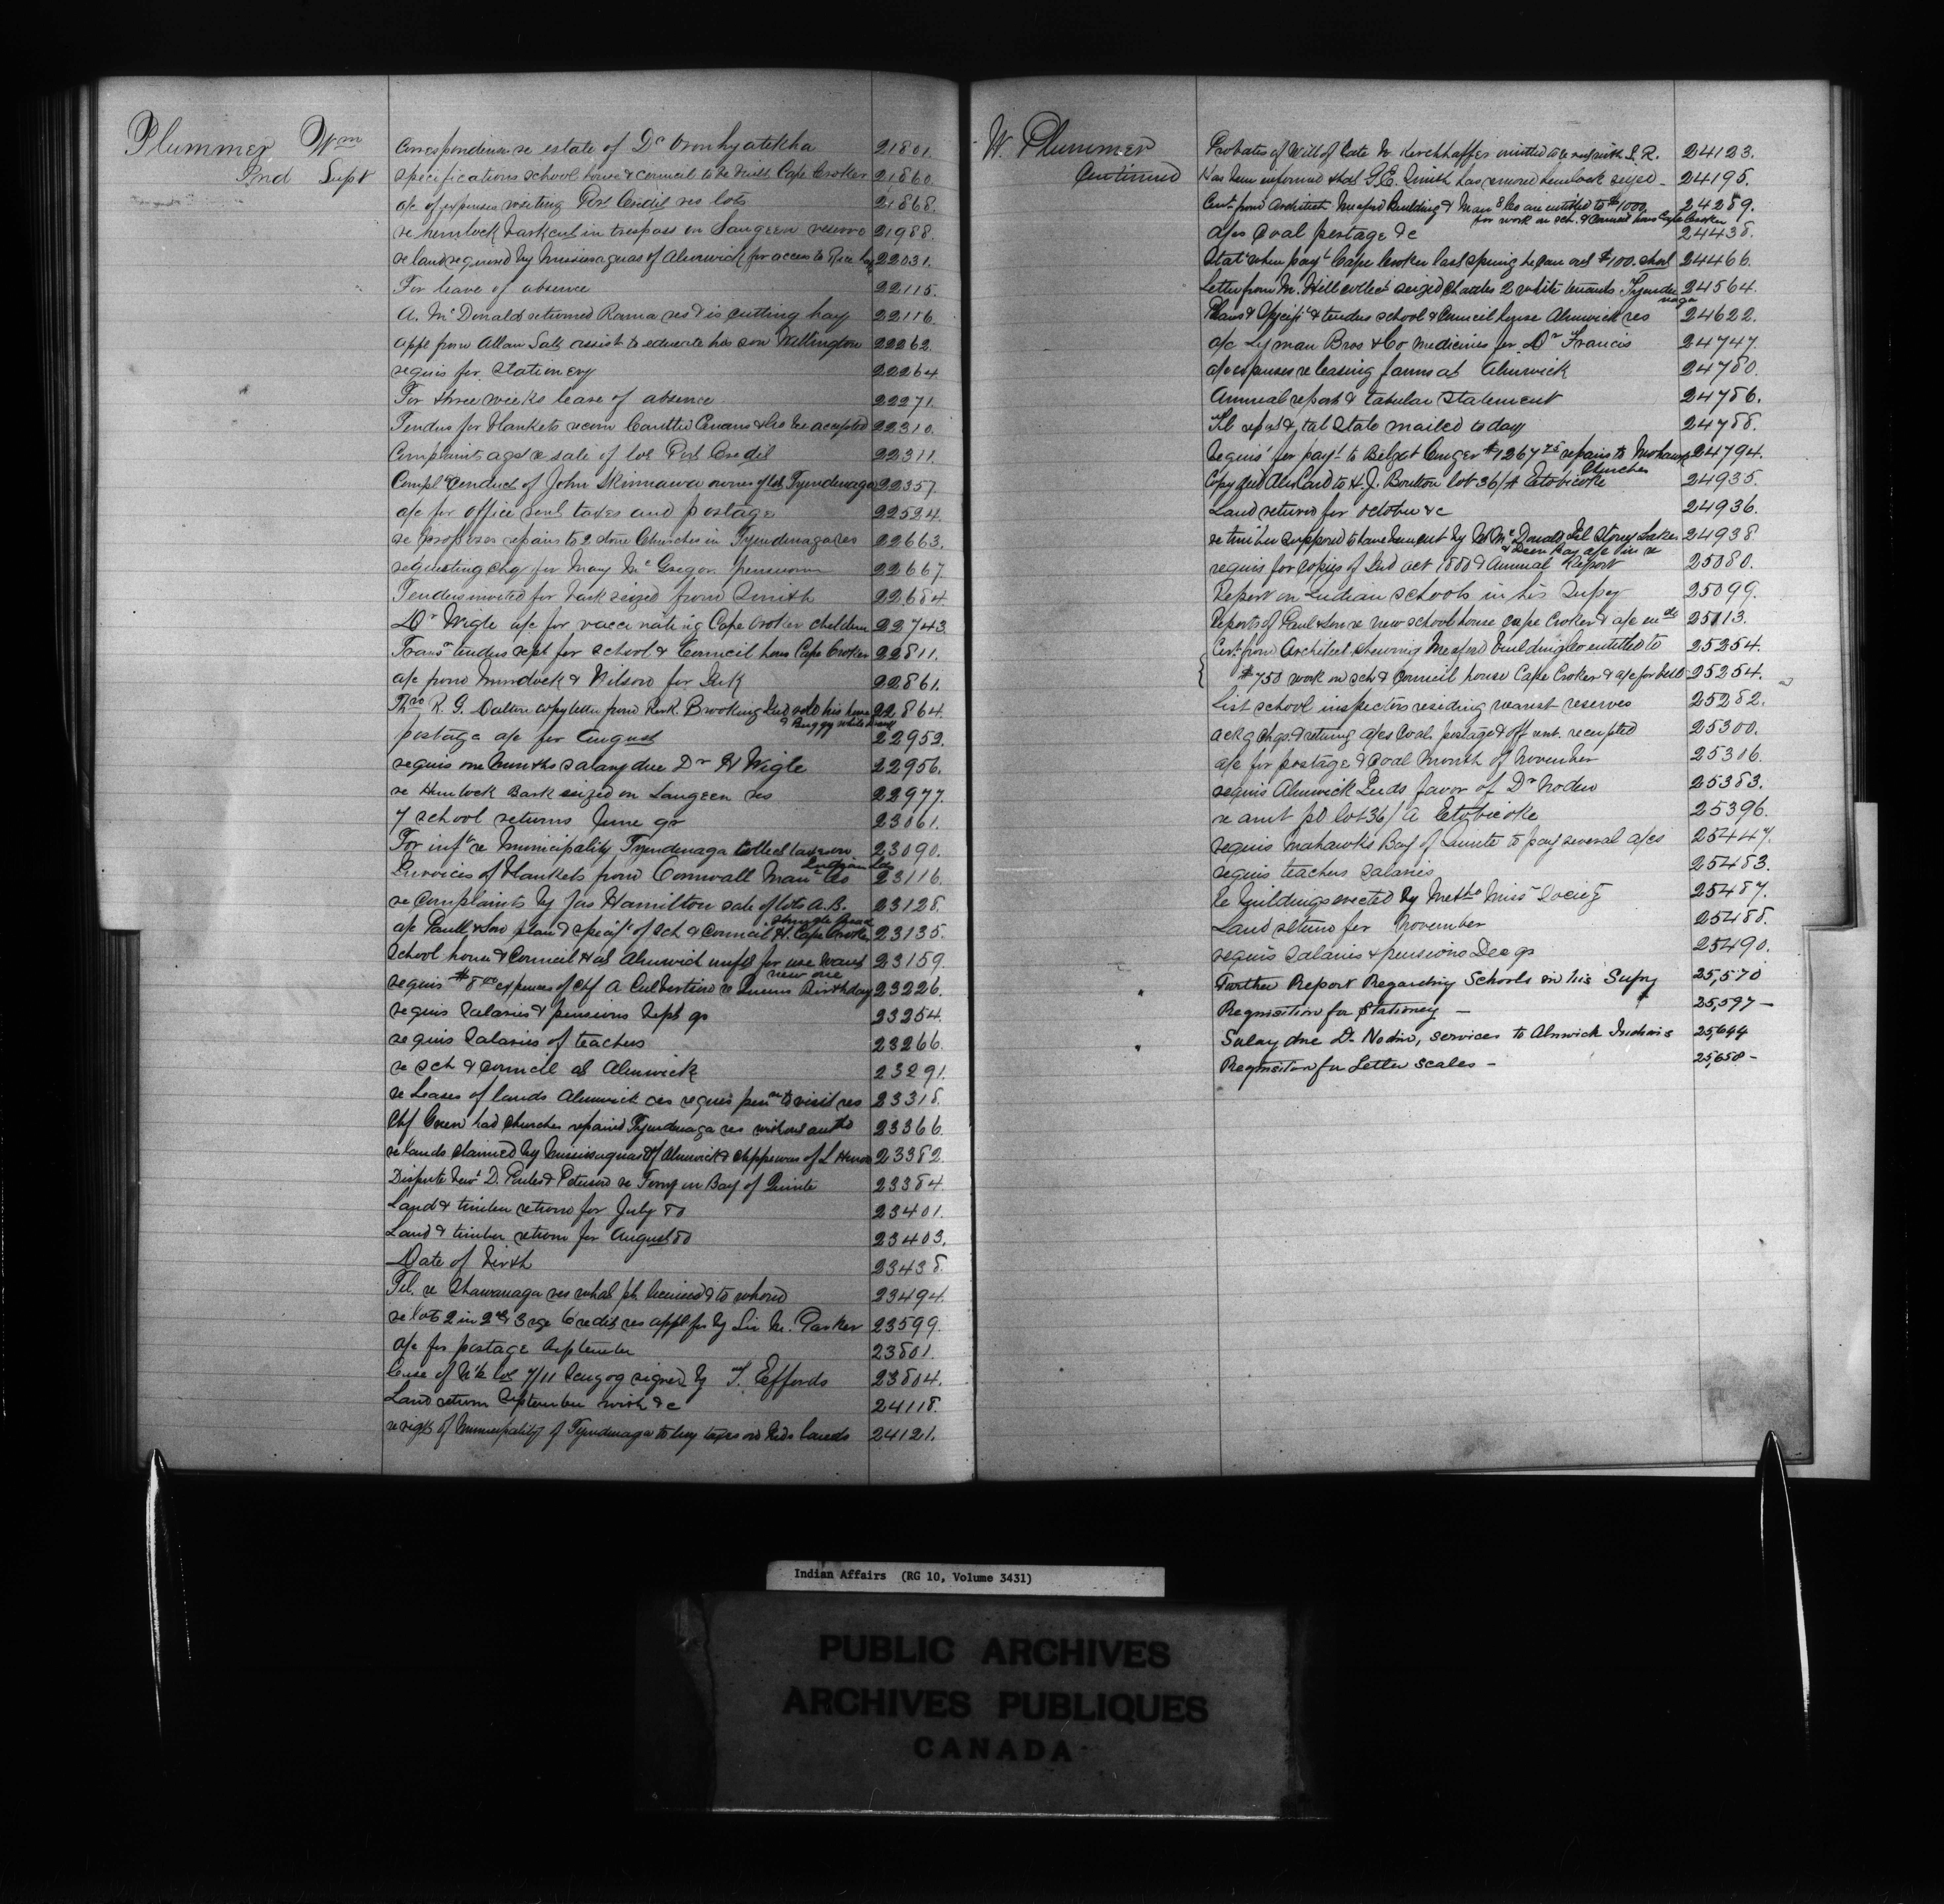 Plummer Wm
Ind Supt
Correspondence re estate of Dr Oronhyatekha 21801.
Specifications school house & council to be built Cape Croker 21860.
a/c of expenses visiting Port Credit res lots 21868.
re hemlock bark cut in trespass on Saugeen reserve 21988.
re land required by Mississaguas of Alnwick for access to Rice 22031.
For leave of absence 22115.
A. McDonald returned Rama res & is cutting hay 22116.
appl from Allan Salt assist to educate his son Wellington 22262.
requis for Stationery 22264.
For three weeks leave of absence 22271.
Tenders for blankets recom Cantlie Ewans & Co be accepted 22310.
Complaints agst re sale of lot Port Credit 22311.
Compl conduct of John Skinnawa owner of lot Tyendenaga 22357.
a/c for office rent taxes and postage 22524.
re proposes repairs to 2 stone Churches in Tyendenaga res 22663.
requesting chq for Mary McGregor pension 22667.
Tenders invited for bark seized from Smith 22684.
Dr Wigle a/c for vaccinating Cape Croker children 22743.
Trans tenders rept for school & Council house Cape Croker 22811.
a/c from Murdock & Wilson for Desk 22861.
Thro R. G. Dalton copy letter from Brooking Ind sold his horse 22864.
& Buggy while drunk
postage a/c for August 22952.
requis one months salary due Dr W Wigle 22956.
re Hemlock Bark seized on Saugeen res 22977.
7 school returns June qr 23061.
For inf re Municipality Tyendenaga collect taxes on 23090.
Indian Lds
Invoices of blankets from Cornwall Manf Co 23116.
re Complaints by Jas Hamilton sale of lots A. B. 23128.
a/c Paull & Son plan & specif of Sch & Council H. Cape Croker 23135.
School house & Council H at Alnwick unfit for use wants 23159.
new one
requis $8.00 expenses of Chf A Culbertson re Queens Birthday 23226.
requis Salaries & pensions Sept qr 23254.
requis Salaries of teachers 23266.
re Sch & Council at Alnwick 23291.
re Leases of lands Alnwick res requis to visit res 23318.
Chf Green had Churches repaired Tyendenaga res without auth 23366.
re lands claimed by Mississaguas of Alnwick & Chippewas of L Huron 23382.
Dispute D. Peterson re Ferry on Bay of Quinte 23384.
Land & timber return for July 80 23401.
Land & timber return for August 80 23403.
Date of birth 23438.
Tel. re Shawanaga res what pt licensed & to whom 23494.
re lots 2 in 2 & 3 rge Credit res appl for by Sir M. Parker 23599.
a/c for postage September 23801.
lease of N½ lot 7/11 Scugog signed by T. Effords 23804.
Land return September with &c 24118.
re right of Municipality of Tyendenaga to levy taxes on Inds lands 24121.
W. Plummer
Continued
Probates of Will of late Kerchhaffer omitted to be sent with L. R. 24123.
Has been informed that G. E. Smith has removed hemlock seized 24195.
Cert from Architect Meaford Building & Manf Co are entitled to $1000. 24289.
for work on sch. & Council house Cape Croker
a/cs Coal postage &c 24438.
Stat when payt Cape Croker last spring he ran out $100. short 24466.
Letter from M. Hill collect seized Chattles 2 white tenants Tyende 24564.
naga
Plans & Specif & tenders school & Council house Alnwick res 24622.
a/c Lyman Bros & Co medicines for Dr Francis 24747.
a/c expenses releasing farms at Alnwick 24780.
Annual report & tabular Statement 24786.
Tel report & tab State mailed today 24788.
Requis for payt to Belzat Cuger $1267 75 repairs to Mohawk 24794.
Churches
Copy Abs land to H. J. Boulton lot 36/A Etobicoke 24935.
Land return for October &c 24936.
re timber supposed to have been cut by W McDonald Isl Stoney Lakes 24938.
& Deer Bay
requis for Copies of Ind act 1880 & Annual Report 25080.
Report on Indian schools in his Supcy 25099.
Reports of Paul & Son re New school house Cape Croker & a/c 25113.
Cert from Architect shewing Meaford Building Co entitled to 25254.
$750 work on sch & Council house Cape Croker & a/c for bell 25254.
List school inspectors residing nearest reserves 25282.
ackg chqs & returng a/cs Coal postage & off rent. receipted 25300.
a/c for postage & Coal Month of November 25316.
requis Alnwick Inds favor of Dr Noden 25383.
re amt pd lot 36/A Etobicoke 25396.
requis Mohawks Bay of Quinte to pay several a/cs 25447.
requis teachers Salaries 25483.
re Buildings erected by Meth Miss Society 25487.
Land return for November 25488.
requis Salaries & pensions Dec qr 25490.
Further Report Regarding Schools in his Supcy 25,570
Requisition for Stationery — 25,597 —
Salary due Dr Nodin, services to Alnwick Indians 25,644
Requisition for Letter scales — 25,658 —
Indian Affairs (RG 10, Volume 3431)
PUBLIC ARCHIVES
ARCHIVES PUBLIQUES
CANADA